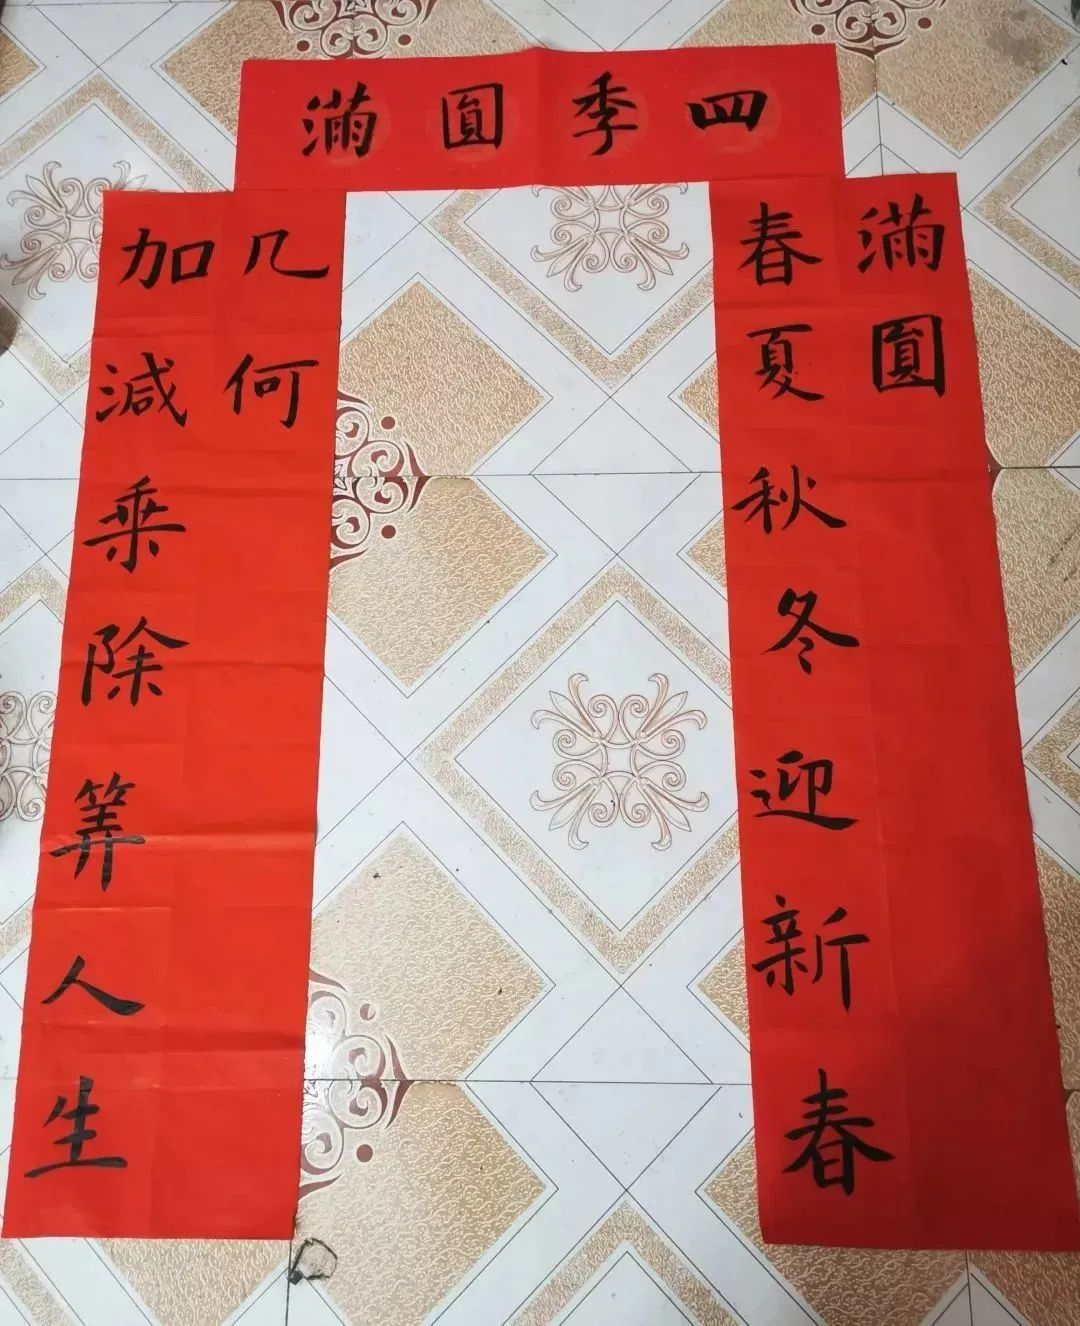 四季圓滿
滿圓
春夏秋冬迎新春
几何
加減乗除筭人生